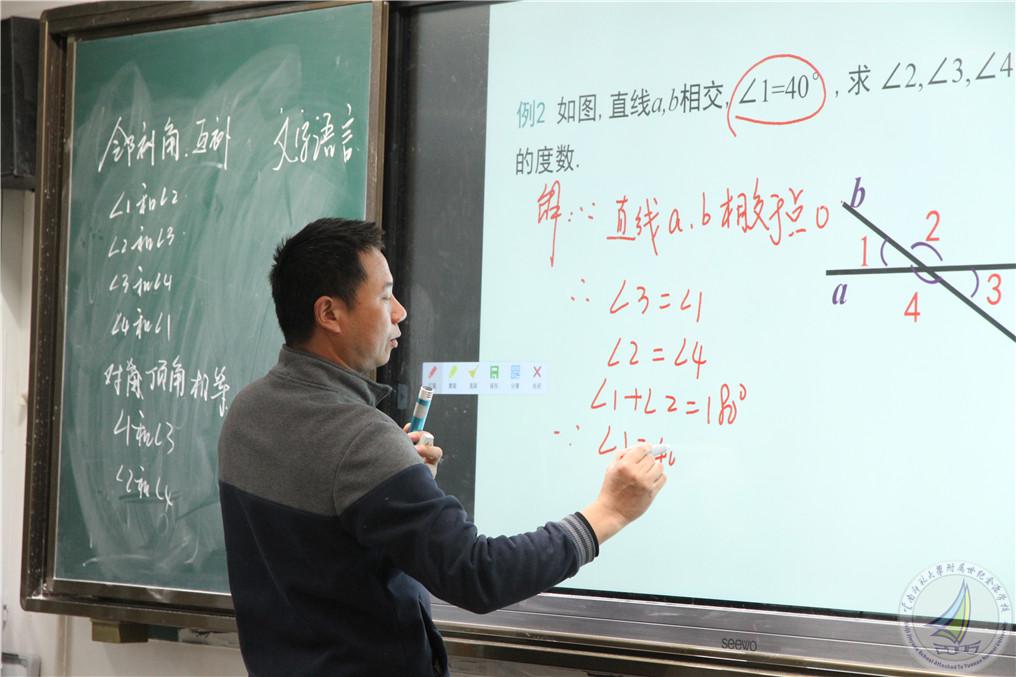 邻补角.互补 文字语言
∠1和∠2.
∠2和∠3.
∠3和∠4
∠4和∠1
对顶角相等
∠1和∠3
∠2和∠4
例2 如图,直线a,b相交,∠1=40°,求∠2,∠3,∠4
的度数.
解:∵ 直线a.b相交于点O
∴ ∠3=∠1
∠2=∠4
∠1+∠2=180°
∵ ∠1=40
b
1
2
a
4
3
seewo